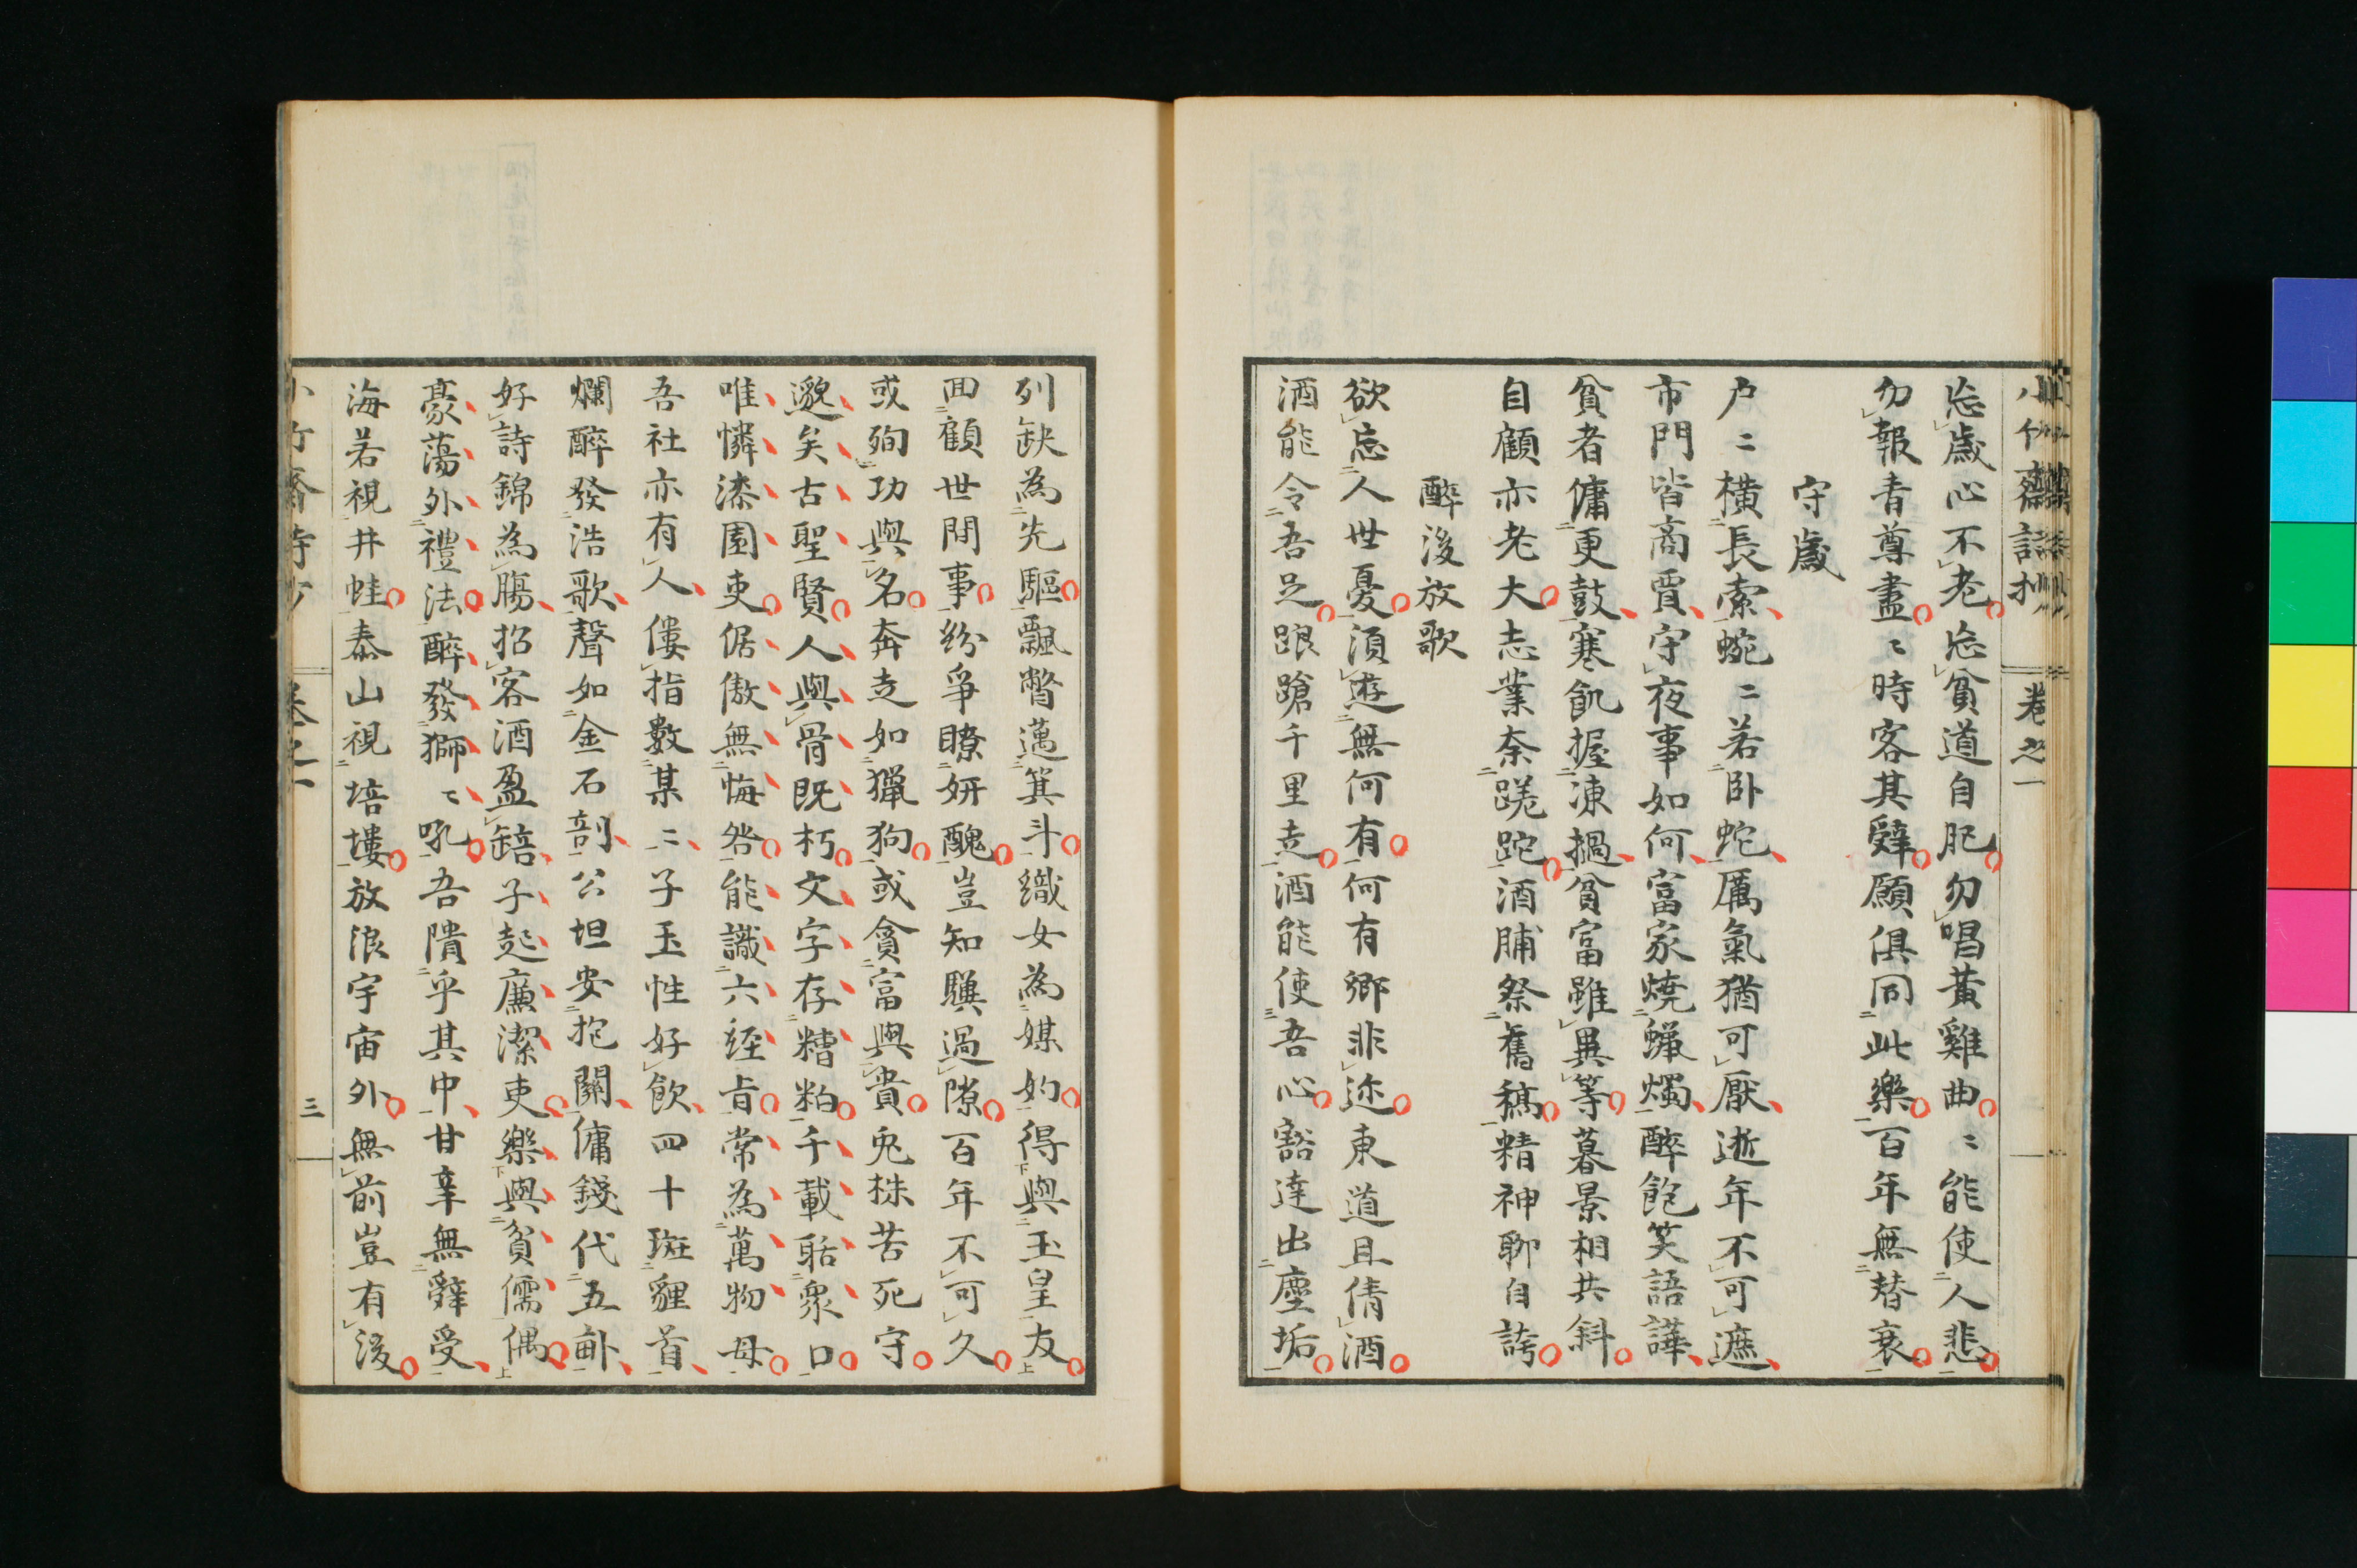 小竹齋詩抄 卷之一
忘歲心不老忘貧道自肥勿唱黃雞曲〻能使人悲
勿報青尊盡〻時客其辭願俱同此樂百年無替衰
守歲
戶〻橫長索蜿〻若臥蛇厲氣猶可厭逝年不可遮
市門皆商賈守夜事如何富家燒蠟燭醉飽笑語譁
貧者傭更鼓寒飢握凍撾貧富雖異等暮景相共斜
自顧亦老大志業奈蹉跎酒脯祭舊稿精神聊自誇
醉後放歌
欲忘人世憂須遊無何有何有鄉非迩東道且倩酒
酒能令吾足踉蹌千里走酒能使吾心豁達出塵垢
列缺為先驅飄瞥邁箕斗織女為媒妁得與玉皇友
回顧世間事紛爭瞭妍醜豈知驥過隙百年不可久
或殉功與名奔走如獵狗或貪富與貴兎株苦死守
邈矣古聖賢人與骨既朽文字存糟粕千載聒衆口
唯憐漆園吏倨傲無悔咎能識六経旨常為萬物母
吾社亦有人僂指數某〻子玉性好飲四十斑貍首
爛醉發浩歌聲如金石剖公坦安抱關傭錢代五畝
好詩錦為膓招客酒盈䤃子起廉潔吏樂與貧儒偶
豪蕩外禮法醉發獅〻吼吾隤乎其中甘辛無辭受
海若視井蛙泰山視培塿放浪宇宙外無前豈有後
小竹齋詩抄 卷之一 三